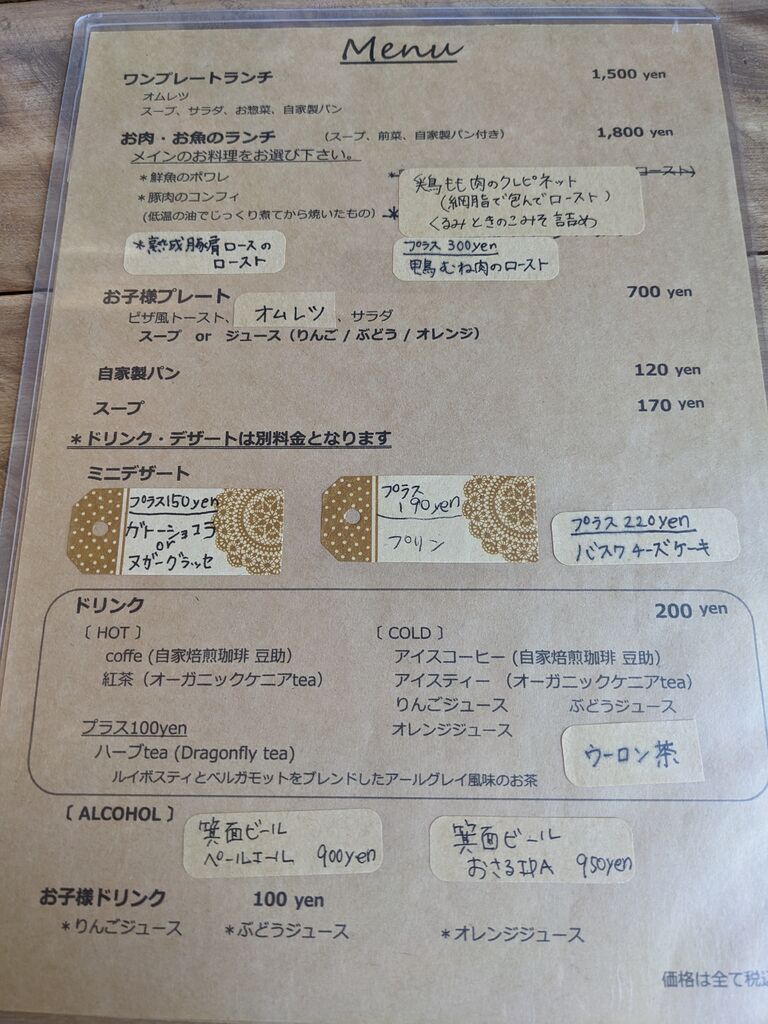 Menu
ワンプレートランチ 1,500 yen
オムレツ
スープ、サラダ、お惣菜、自家製パン
お肉・お魚のランチ （スープ、前菜、自家製パン付き） 1,800 yen
メインのお料理をお選び下さい。
＊鮮魚のポワレ
＊豚肉のコンフィ
(低温の油でじっくり煮てから焼いたもの)
ースト)
鶏もも肉のクレピネット
(網脂で包んでロースト)
くるみときのこみそ詰め
＊熟成豚肩ロースの
ロースト
プラス 300yen
鴨むね肉のロースト
お子様プレート 700 yen
ピザ風トースト、オムレツ、サラダ
スープ or ジュース（りんご / ぶどう / オレンジ）
自家製パン 120 yen
スープ 170 yen
＊ドリンク・デザートは別料金となります
ミニデザート
プラス150yen
ガトーショコラ
or
ヌガーグラッセ
プラス
190yen
プリン
プラス 220yen
バスクチーズケーキ
ドリンク 200 yen
〔 HOT 〕
coffe (自家焙煎珈琲 豆助）
紅茶（オーガニックケニアtea）
プラス100yen
ハーブtea (Dragonfly tea)
ルイボスティとベルガモットをブレンドしたアールグレイ風味のお茶
〔 COLD 〕
アイスコーヒー (自家焙煎珈琲 豆助）
アイスティー （オーガニックケニアtea）
りんごジュース ぶどうジュース
オレンジジュース
ウーロン茶
〔 ALCOHOL 〕
箕面ビール
ペールエール 900yen
箕面ビール
おさるIPA 950yen
お子様ドリンク 100 yen
＊りんごジュース ＊ぶどうジュース ＊オレンジジュース
価格は全て税込